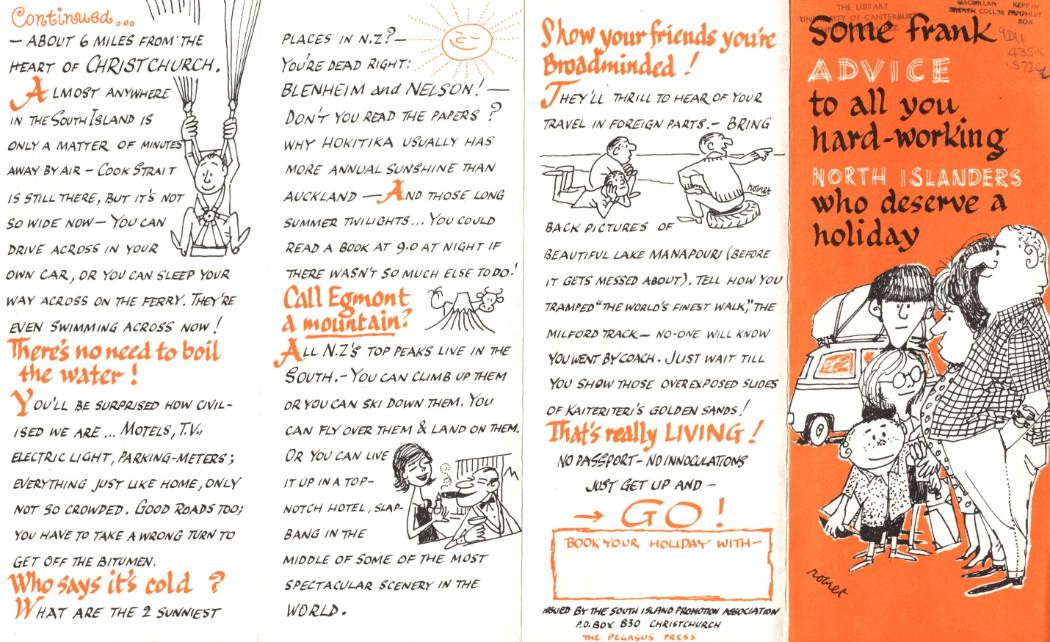 Continued...
— ABOUT 6 MILES FROM THE
HEART OF CHRISTCHURCH.
ALMOST ANYWHERE
IN THE SOUTH ISLAND IS
ONLY A MATTER OF MINUTES
AWAY BY AIR — COOK STRAIT
IS STILL THERE, BUT IT'S NOT
SO WIDE NOW — YOU CAN
DRIVE ACROSS IN YOUR
OWN CAR, OR YOU CAN SLEEP YOUR
WAY ACROSS ON THE FERRY. THEY'RE
EVEN SWIMMING ACROSS NOW!
There's no need to boil
the water!
YOU'LL BE SURPRISED HOW CIVIL-
ISED WE ARE ... MOTELS, T.V.,
ELECTRIC LIGHT, PARKING-METERS;
EVERYTHING JUST LIKE HOME, ONLY
NOT SO CROWDED. GOOD ROADS TOO;
YOU HAVE TO TAKE A WRONG TURN TO
GET OFF THE BITUMEN.
Who says it's cold ?
WHAT ARE THE 2 SUNNIEST
PLACES IN N.Z? —
YOU'RE DEAD RIGHT:
BLENHEIM and NELSON! —
DON'T YOU READ THE PAPERS?
WHY HOKITIKA USUALLY HAS
MORE ANNUAL SUNSHINE THAN
AUCKLAND — AND THOSE LONG
SUMMER TWILIGHTS... YOU COULD
READ A BOOK AT 9.0 AT NIGHT IF
THERE WASN'T SO MUCH ELSE TO DO!
Call Egmont
a mountain?
ALL N.Z'S TOP PEAKS LIVE IN THE
SOUTH. - YOU CAN CLIMB UP THEM
OR YOU CAN SKI DOWN THEM. YOU
CAN FLY OVER THEM & LAND ON THEM.
OR YOU CAN LIVE
IT UP IN A TOP-
NOTCH HOTEL, SLAP-
BANG IN THE
MIDDLE OF SOME OF THE MOST
SPECTACULAR SCENERY IN THE
WORLD.
Show your friends you're
Broadminded!
THEY'LL THRILL TO HEAR OF YOUR
TRAVEL IN FOREIGN PARTS. - BRING
BACK PICTURES OF
BEAUTIFUL LAKE MANAPOURI (BEFORE
IT GETS MESSED ABOUT). TELL HOW YOU
TRAMPED "THE WORLD'S FINEST WALK," THE
MILFORD TRACK — NO-ONE WILL KNOW
YOU WENT BY COACH. JUST WAIT TILL
YOU SHOW THOSE OVEREXPOSED SLIDES
OF KAITERITERI'S GOLDEN SANDS!
That's really LIVING!
NO PASSPORT - NO INNOCULATIONS
JUST GET UP AND —
→ GO!
BOOK YOUR HOLIDAY WITH—
ISSUED BY THE SOUTH ISLAND PROMOTION ASSOCIATION
P.O. BOX 830 CHRISTCHURCH
THE PEGASUS PRESS
THE LIBRARY
UNIVERSITY OF CANTERBURY
MACMILLAN
BROWN COLL'N
KEPT IN
PAMPHLET
BOX
Some frank
ADVICE
to all you
hard-working
NORTH ISLANDERS
who deserve a
holiday